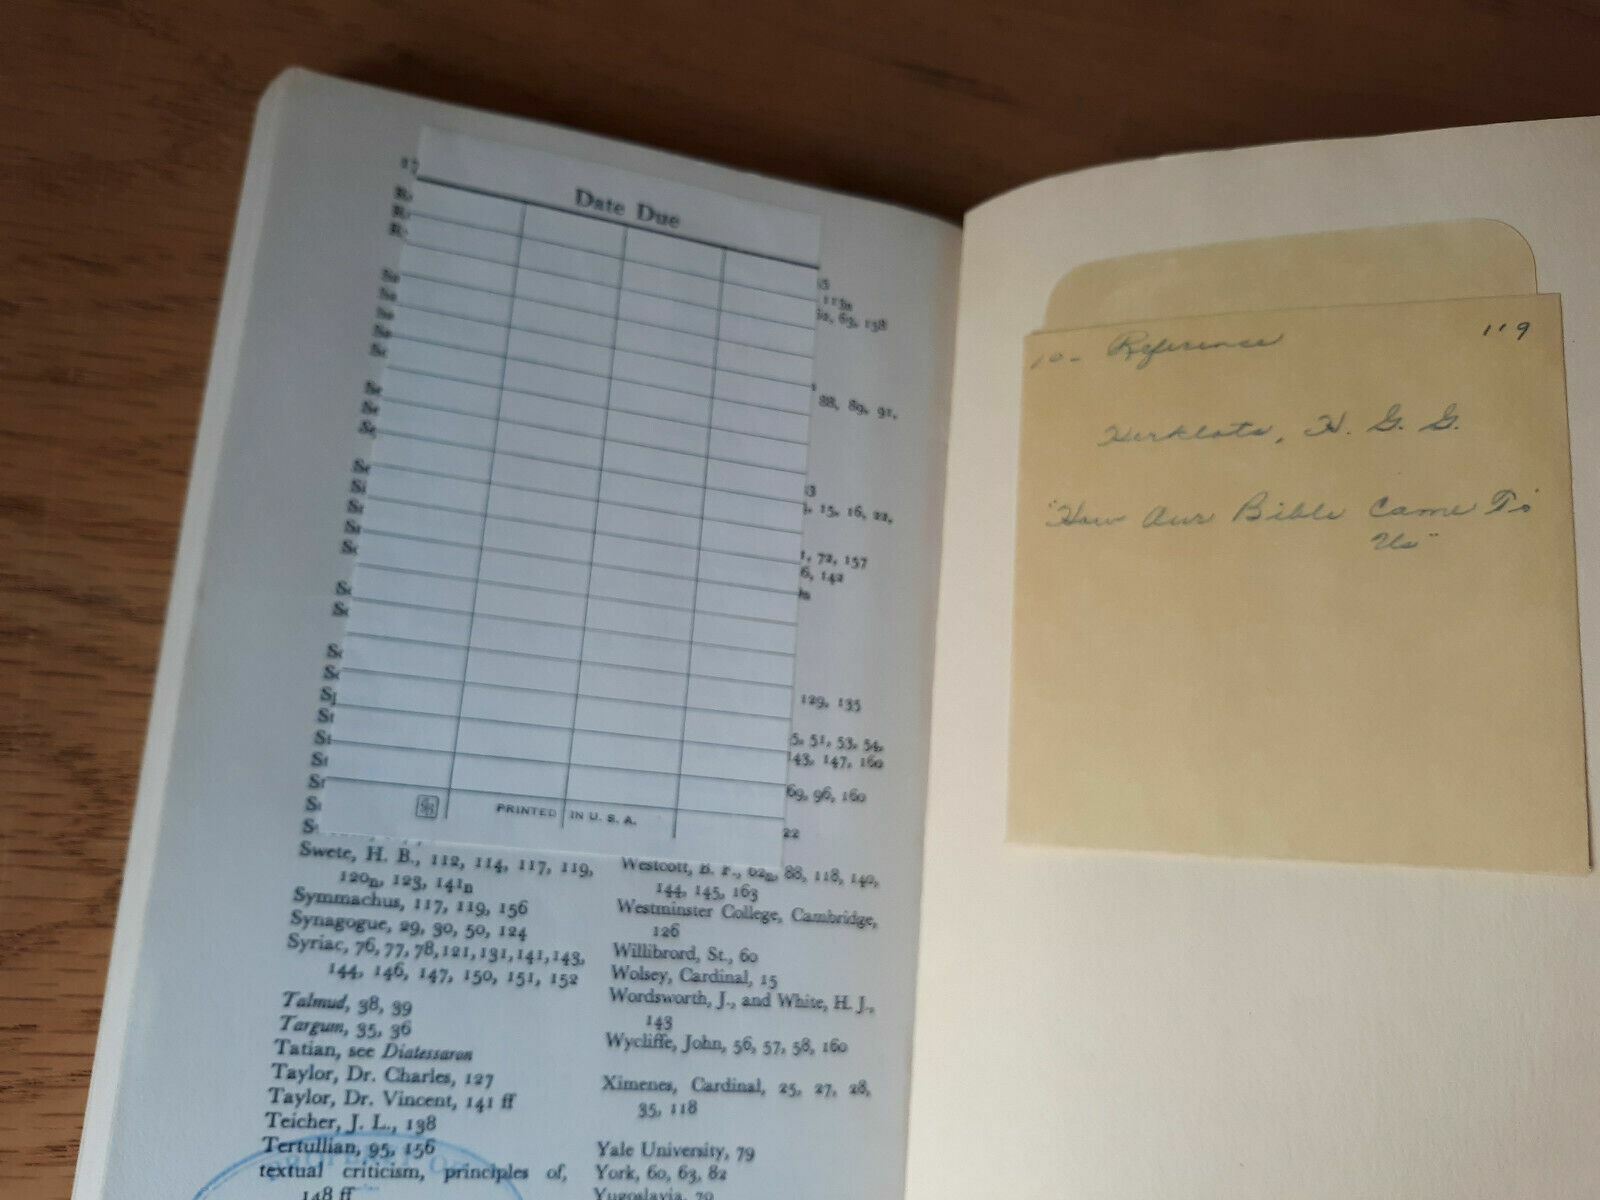 Date Due
PRINTED IN U. S. A.
113n
62, 63, 138
88, 89, 91,
15, 16, 22,
72, 157
6, 142
129, 135
5, 51, 53, 54,
143, 147, 160
69, 96, 160
22
Swete, H. B., 112, 114, 117, 119,
120n, 123, 141n
Symmachus, 117, 119, 156
Synagogue, 29, 30, 50, 124
Syriac, 76, 77, 78, 121, 131, 141, 143,
144, 146, 147, 150, 151, 152
Talmud, 38, 39
Targum, 35, 36
Tatian, see Diatessaron
Taylor, Dr. Charles, 127
Taylor, Dr. Vincent, 141 ff
Teicher, J. L., 138
Tertullian, 95, 156
textual criticism, principles of,
148 ff
Westcott, B. F., 62n, 88, 118, 140,
144, 145, 163
Westminster College, Cambridge,
126
Willibrord, St., 60
Wolsey, Cardinal, 15
Wordsworth, J., and White, H. J.,
143
Wycliffe, John, 56, 57, 58, 160
Ximenes, Cardinal, 25, 27, 28,
35, 118
Yale University, 79
York, 60, 63, 82
Yugoslavia, 79
PROPERTY OF
10- Reference 119
Herklots, H. G. G.
"How Our Bible Came To
Us"